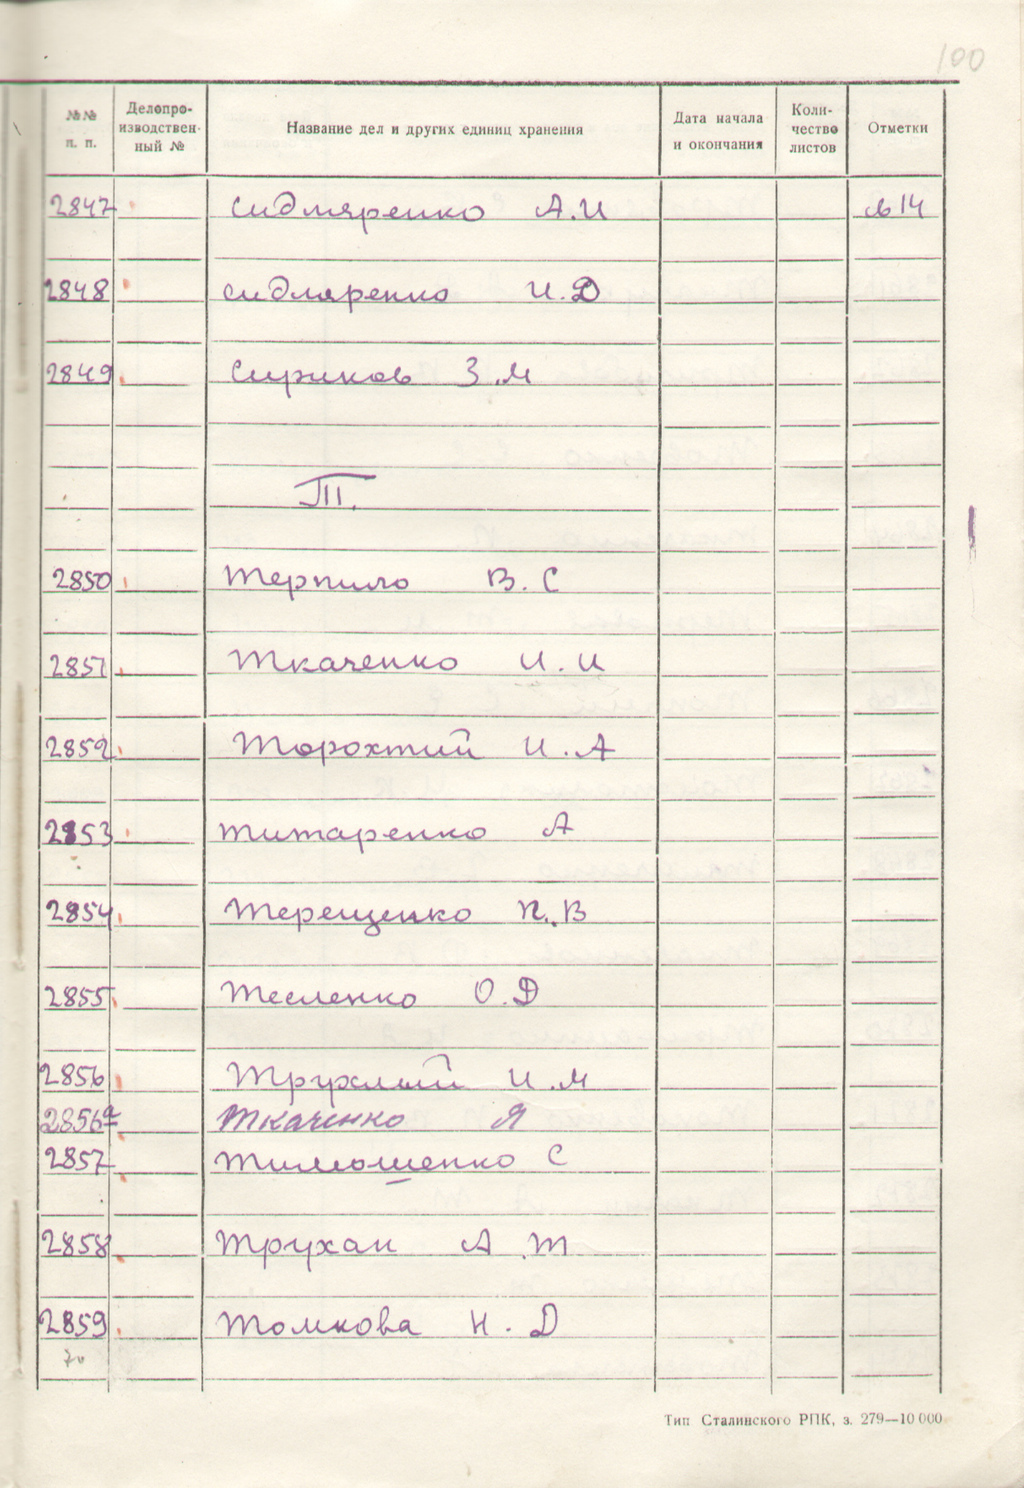 100
№№ п. п. Делопро-изводствен-ный № Название дел и других единиц хранения Дата начала и окончания Коли-чество листов Отметки
2847 Сидляренко А.И 14
2848 Сидляренко И.Д
2849 Сириков З.М
Т.
2850 Терпило В.С
2851 Ткаченко И.И
2852 Торохтий И.А
2853 Титаренко А
2854 Терещенко П.В
2855 Тесленко О.Д
2856 Трухлый И.М
2856а Ткаченко Я
2857 Тимошенко С
2858 Трухан А.Т
2859 Томкова Н.Д
Тип Сталинского РПК, з. 279—10 000